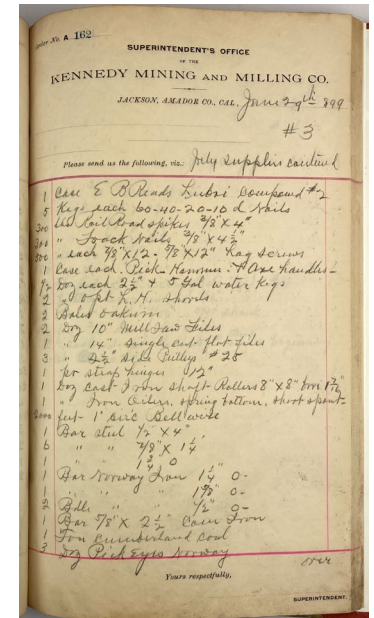 Order No. A 162
SUPERINTENDENT'S OFFICE
OF THE
KENNEDY MINING AND MILLING CO.
JACKSON, AMADOR CO., CAL., June 29th 1899
#3
Please send us the following, viz.: July supplies continued
1 Case E B Reads Lubri Compound #2
5 Kegs each 60-40-20-10 d Nails
300 lbs Rail Road spikes 3/8" X 4"
300 " Track Nails 3/8" X 4 1/2"
500 " each 3/8" X 12 - 5/8" X 12" Lag Screws
1 Case each Pick Hammer & Axe handles
1/2 Doz each 2 1/2 & 5 Gal water Kegs
2 " L.H. shovels
2 Bales Oakum
2 Doz 10" Mill Saw Files
1 " 14" single cut flat files
3 " 2 1/2" side Pulleys #28
1 pr strap hinges 12"
1 Doz cast Iron shaft Rollers 8" X 8"
1 " Iron Oilers, spring bottom, short spout
feet 1" circ Bell wire
1 Bar steel 1/2" X 4"
6 " " 3/8" X 1 1/4
1 " " 1 1/4 O
1 Bar Norway Iron 1 1/4 O-
1 " " " O-
2 Bdls " " 1/2" O-
1 Bar 5/8" X 2 1/2" Cam Iron
1 Ton Cumberland Coal
3 Doz Pick Eyes Norway
over
Yours respectfully,
SUPERINTENDENT.